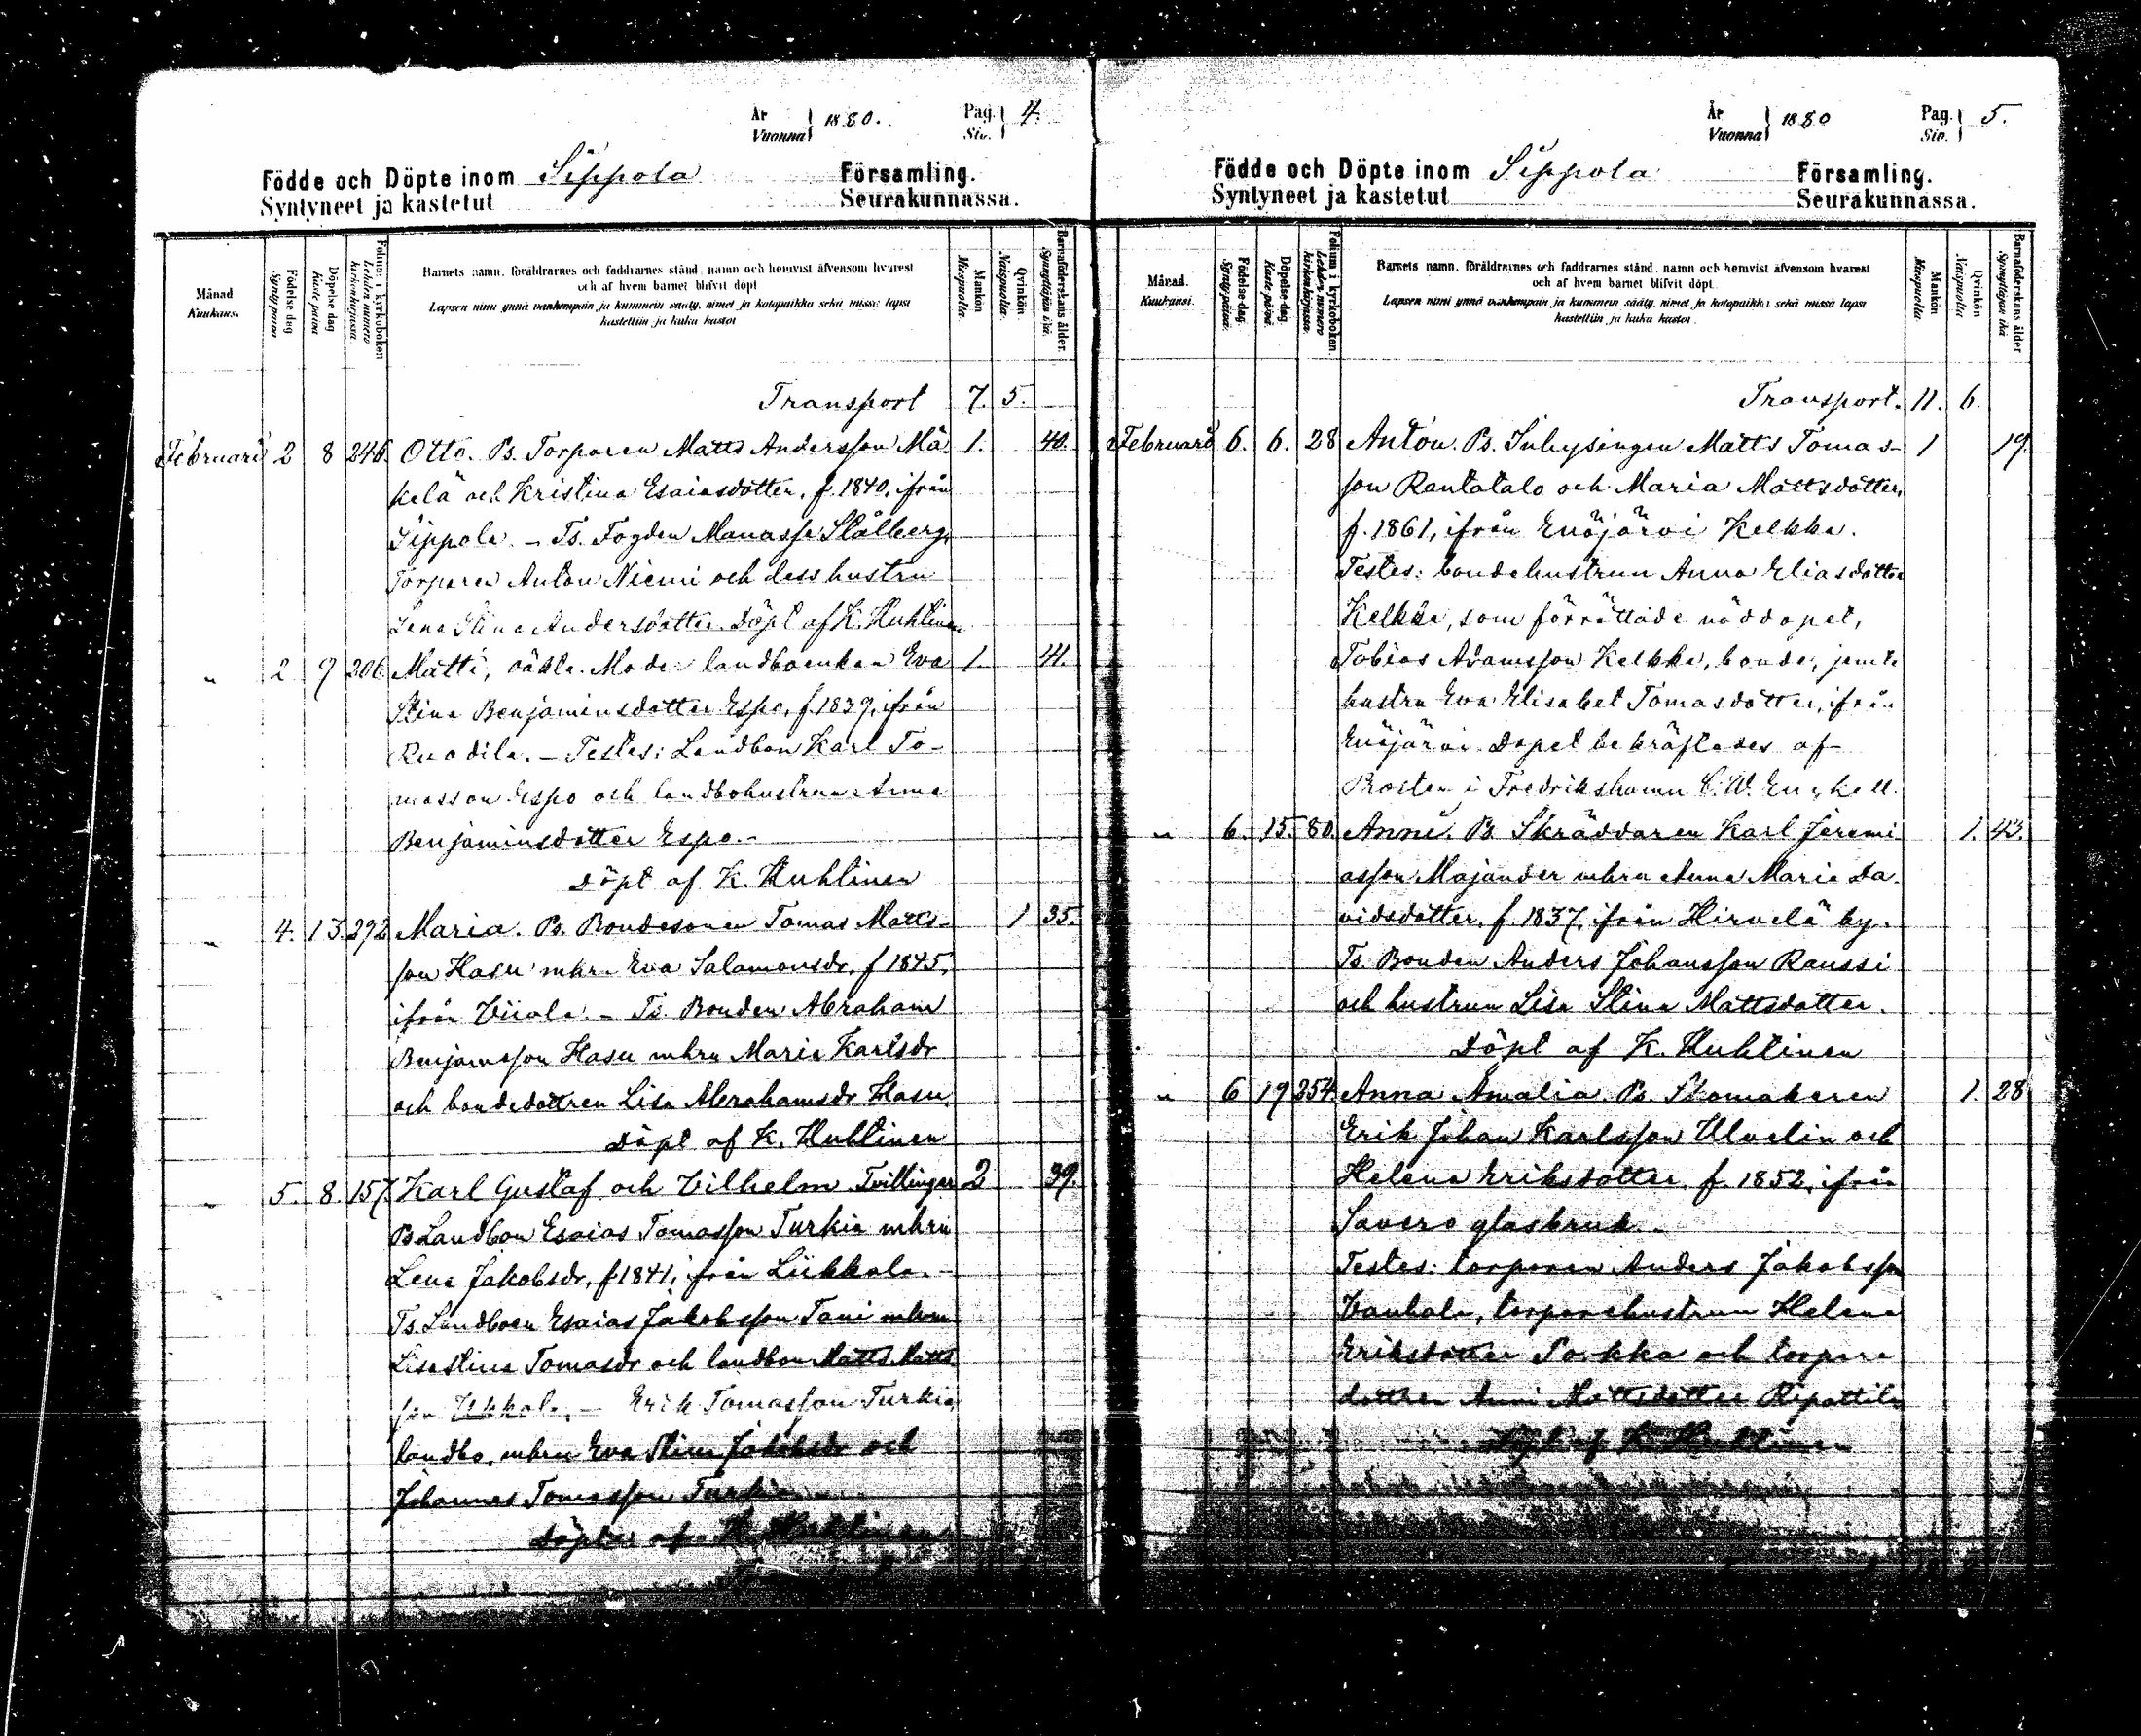 År
Vuonna 1880.
Pag.
Siv. 4.
Födde och Döpte inom Sippola Församling.
Syntyneet ja kastetut Seurakunnassa.
Månad
Kuukaus.
Födelse dag
Syntypäivä
Döpelse dag
Kaste päivä
Folium i kyrkoboken
Lehden numero kirkonkirjassa
Barnets namn, föräldrarnes och faddrarnes stånd, namn och hemvist äfvensom hvarest
och af hvem barnet blifvit döpt
Lapsen nimi ynnä vanhempain ja kummein sääty, nimet ja kotopaikka sekä missä lapsi
kastettiin ja kuka kastoi
Mankön
Miespuolia.
Qvinkön
Naispuolia.
Barnaföderskans ålder.
Synnyttäjän ikä.
Transport 7. 5.
Februari 2 8 246. Otto. Ps. Torparen Matts Andersson Mä- 1. 40.
kelä och Kristina Esaiasdotter, f. 1840, ifrån
Sippola. – Ts. Fogden Manasse Stålberg,
Torparen Anton Niemi och dess hustru
Lena Stina Andersdotter. Döpt af K. Huhtinen
" 2 9 206 Matti, oäkta. Moder: landboenkan Eva 1. 41.
Stina Benjaminsdotter Espo, f. 1839, ifrån
Ruodila. – Testes: Landbon Karl To-
masson Espo och landbohustrun Anna
Benjaminsdotter Espo. –
Döpt af K. Huhtinen
" 4. 13. 292 Maria. Ps. Bondesonen Tomas Matts- 1 35.
son Hasu mhru Eva Salamonsdr, f 1845,
ifrån Viiala. – Ts. Bonden Abraham
Benjamsson Hasu mhru Maria Karlsdr
och bondedottren Lisa Abrahamsdr Hasu.
Döpt af K. Huhtinen
" 5. 8. 157. Karl Gustaf och Vilhelm Tvillingar 2 39.
Ps Landbon Esaias Tomasson Turkia mhru
Lena Jakobsdr, f. 1841, ifrån Liikkala. –
Ts. Landboen Esaias Jakobsson Tani mhru
Lisa Stina Tomasdr och landbon Matts Matts
son – Erik Tomasson Turkia,
landbo, mhru Eva Stina Jakobsdr och
Johannes Tomasson Turkia
Döpta af K. Huhtinen
År
Vuonna 1880
Pag.
Siv. 5.
Födde och Döpte inom Sippola Församling.
Syntyneet ja kastetut Seurakunnassa.
Månad.
Kuukausi.
Födelse-dag.
Syntypäivä.
Döpelse-dag.
Kaste päivä.
Folium i kyrkoboken.
Lehden numero kirkonkirjassa.
Barnets namn, föräldrarnes och faddrarnes stånd, namn och hemvist äfvensom hvarest
och af hvem barnet blifvit döpt.
Lapsen nimi ynnä vanhempain ja kummein sääty, nimet ja kotopaikka sekä missä lapsi
kastettiin ja kuka kastoi.
Mankön
Miespuolia.
Qvinkön
Naispuolia
Barnaföderskans ålder
Synnyttäjän ikä
Transport. 11. 6.
Februari 6. 6. 28 Anton. Ps. Inhysingen Matts Tomas- 1 19.
son Rantatalo och Maria Mattsdotter,
f. 1861, ifrån Enäjärvi Kelkka.
Testes: bondehustrun Anna Eliasdotter
Kelkka, som förrättade nöddopet,
Tobias Adamsson Kelkka, bonde, jemte
hustru Eva Elisabet Tomasdotter, ifrån
Enäjärvi. Dopet bekräftades af
Prosten i Fredrikshamn C. W. Engkell.
" 6. 15. 80. Anni. Ps. Skräddaren Karl Jeremi 1. 43.
asson Majander mhru Anna Maria Da-
vidsdotter, f. 1837, ifrån Hirvelä by.
Ts. Bonden Anders Johansson Raussi
och hustrun Lisa Stina Mattsdotter.
Döpt af K. Huhtinen
" 6 19 254. Anna Amalia. Ps. Skomakaren 1. 28
Erik Johan Karlsson Ulvelin och
Helena Eriksdotter, f. 1852, ifrån
Savero glasbruk.
Testes: torparen Anders Jakobsson
Vanhala, torparehustrun Helena
Eriksdotter och torpare
dottren Anni Mattsdotter Ripattila
Döpt af K. Huhtinen